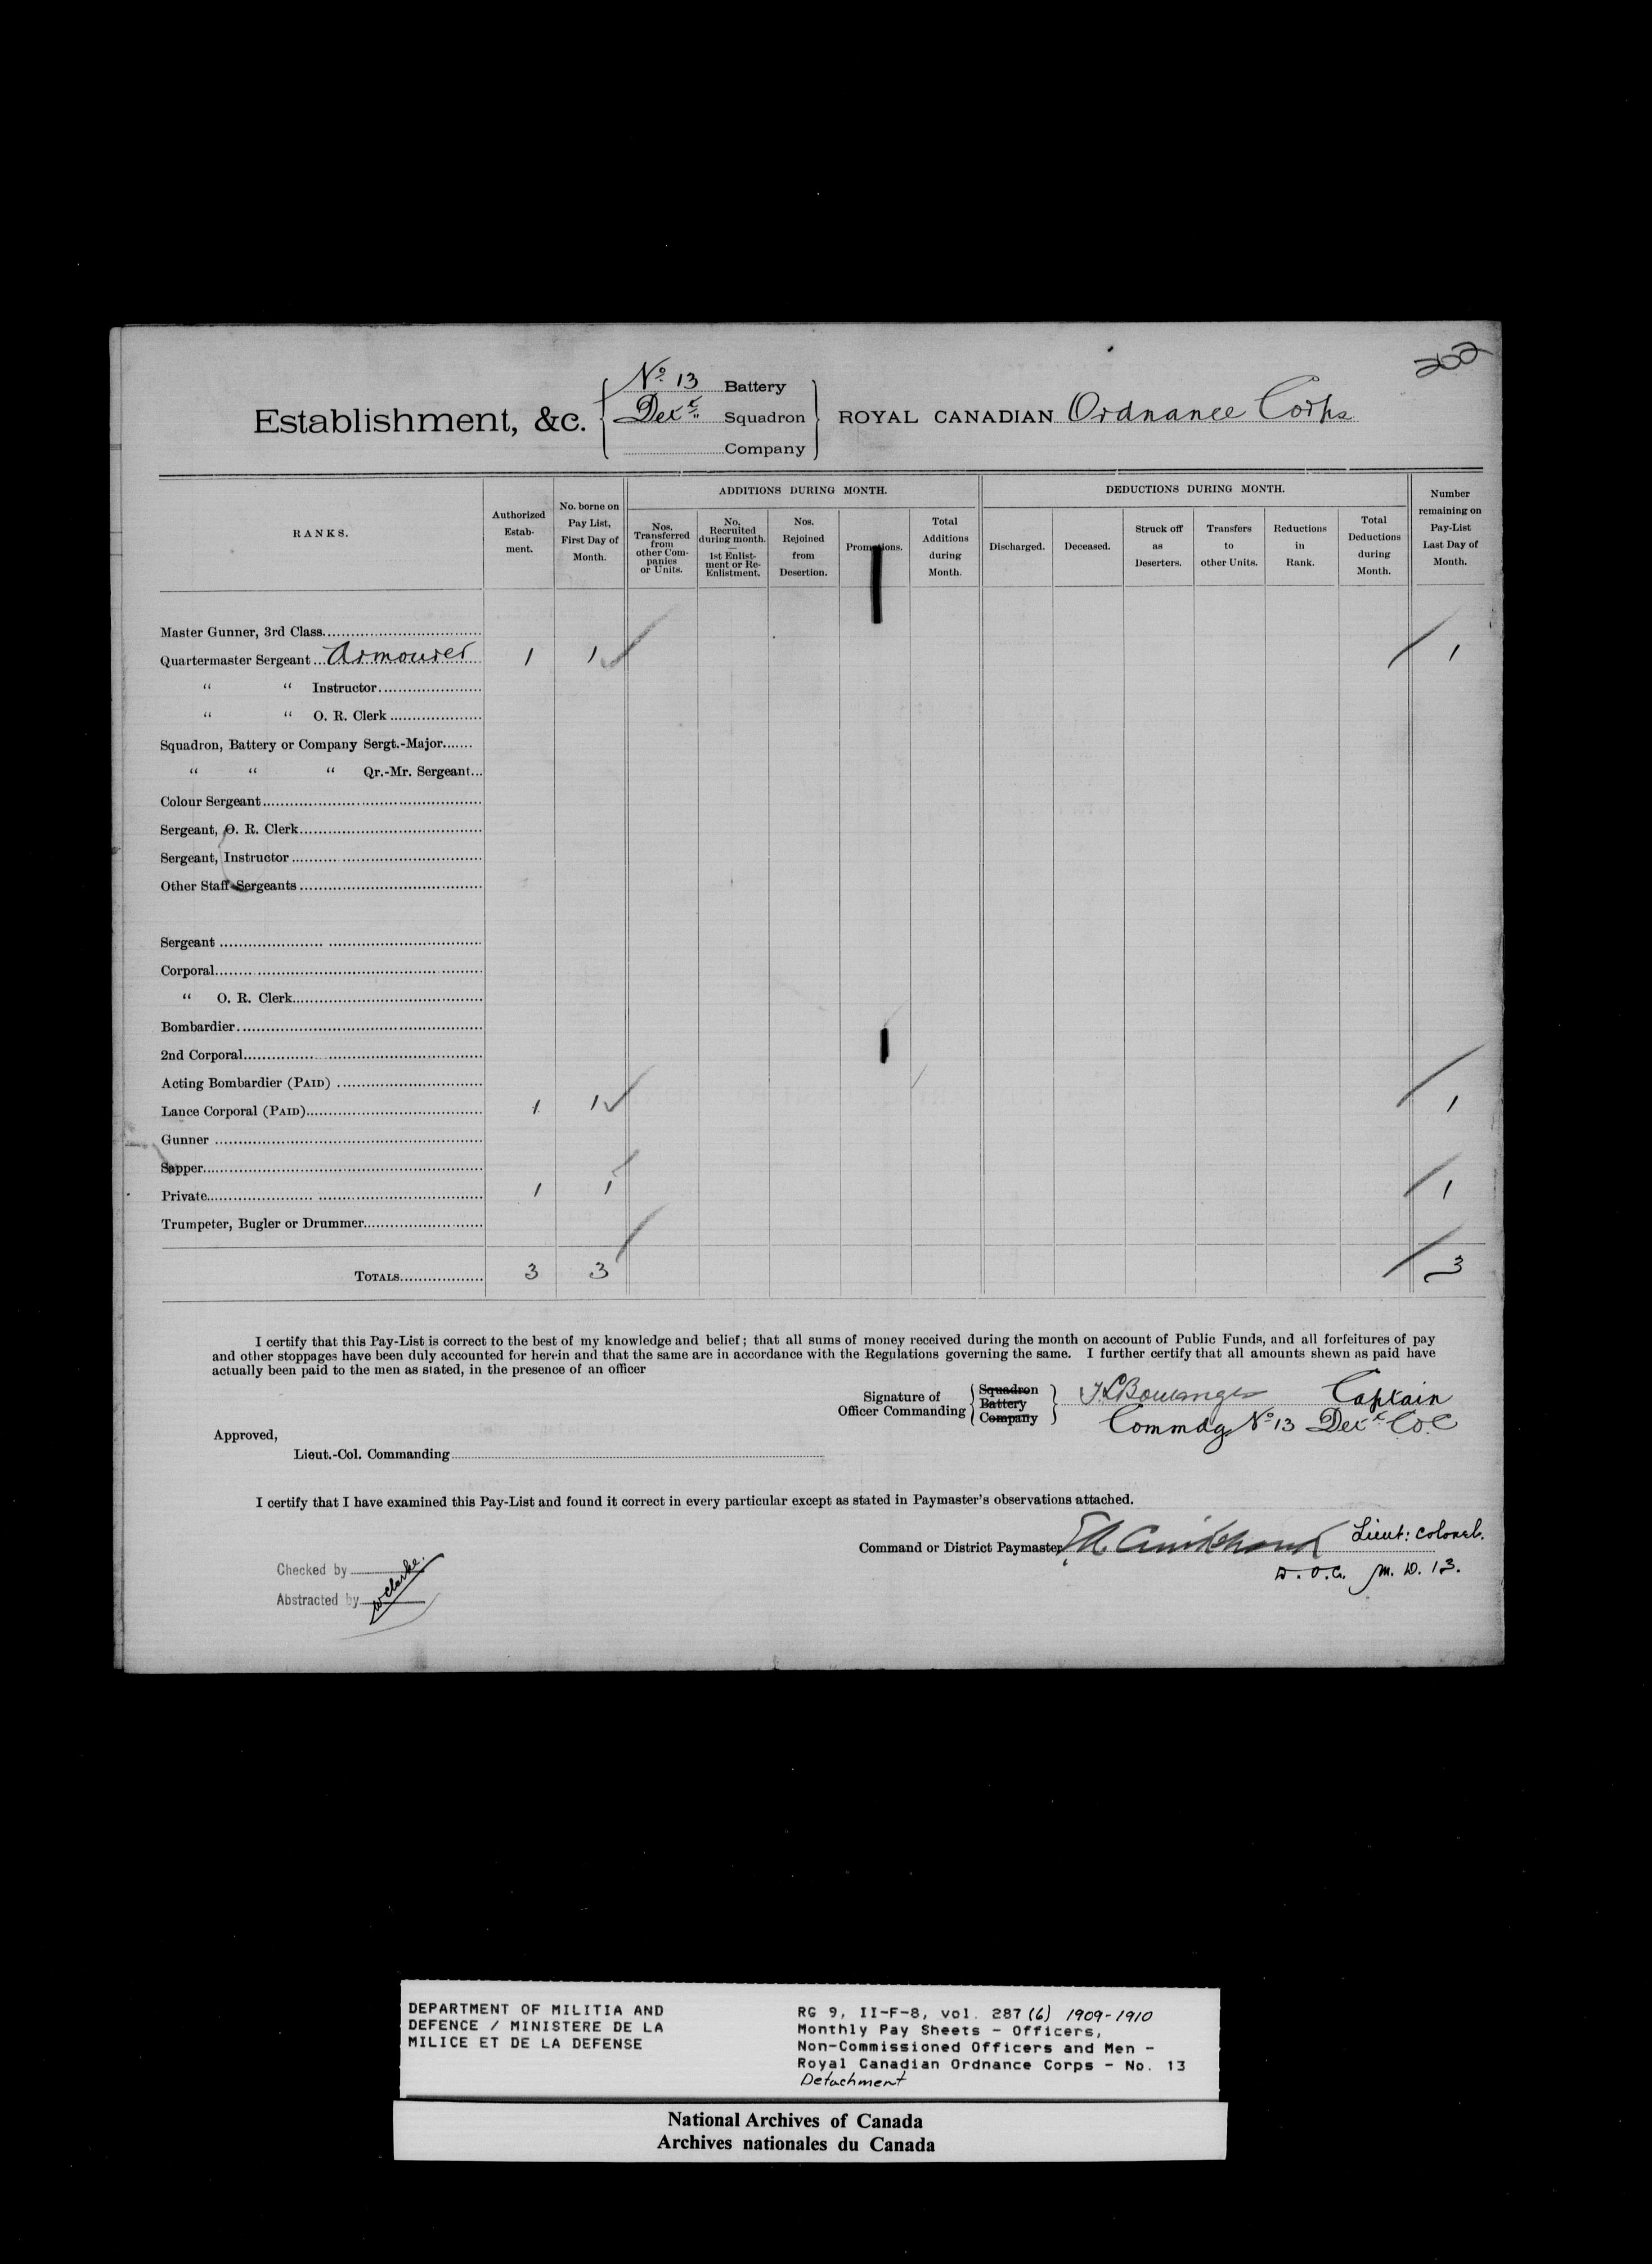 202
Nº 13 Battery
Establishment, &c. Detᵗ Squadron ROYAL CANADIAN Ordnance Corps
Company
RANKS.
Authorized Estab- ment.
No. borne on Pay List, First Day of Month.
ADDITIONS DURING MONTH.
Nos. Transferred from other Com- panies or Units.
No. Recruited during month. — 1st Enlist- ment or Re- Enlistment.
Nos. Rejoined from Desertion.
Promotions.
Total Additions during Month.
DEDUCTIONS DURING MONTH.
Discharged.
Deceased.
Struck off as Deserters.
Transfers to other Units.
Reductions in Rank.
Total Deductions during Month.
Number remaining on Pay-List Last Day of Month.
Master Gunner, 3rd Class
Quartermaster Sergeant Armourer 1 1 1
" " Instructor
" " O. R. Clerk
Squadron, Battery or Company Sergt.-Major
" " " Qr.-Mr. Sergeant
Colour Sergeant
Sergeant, O. R. Clerk
Sergeant, Instructor
Other Staff-Sergeants
Sergeant
Corporal
" O. R. Clerk
Bombardier
2nd Corporal
Acting Bombardier (PAID)
Lance Corporal (PAID) 1 1 1
Gunner
Sapper
Private 1 1 1
Trumpeter, Bugler or Drummer
TOTALS 3 3 3
I certify that this Pay-List is correct to the best of my knowledge and belief; that all sums of money received during the month on account of Public Funds, and all forfeitures of pay
and other stoppages have been duly accounted for herein and that the same are in accordance with the Regulations governing the same. I further certify that all amounts shewn as paid have
actually been paid to the men as stated, in the presence of an officer
Signature of Officer Commanding Squadron Battery Company Captain
Commdg Nº 13 Detᵗ C.O.C
Approved,
Lieut.-Col. Commanding
I certify that I have examined this Pay-List and found it correct in every particular except as stated in Paymaster's observations attached.
Command or District Paymaster Lieut: Colonel.
D.O.C. M.D. 13.
Checked by
Abstracted by
W Clarke.
DEPARTMENT OF MILITIA AND
DEFENCE / MINISTERE DE LA
MILICE ET DE LA DEFENSE
RG 9, II-F-8, vol. 287 (6) 1909-1910
Monthly Pay Sheets - Officers,
Non-Commissioned Officers and Men -
Royal Canadian Ordnance Corps - No. 13
Detachment
National Archives of Canada
Archives nationales du Canada